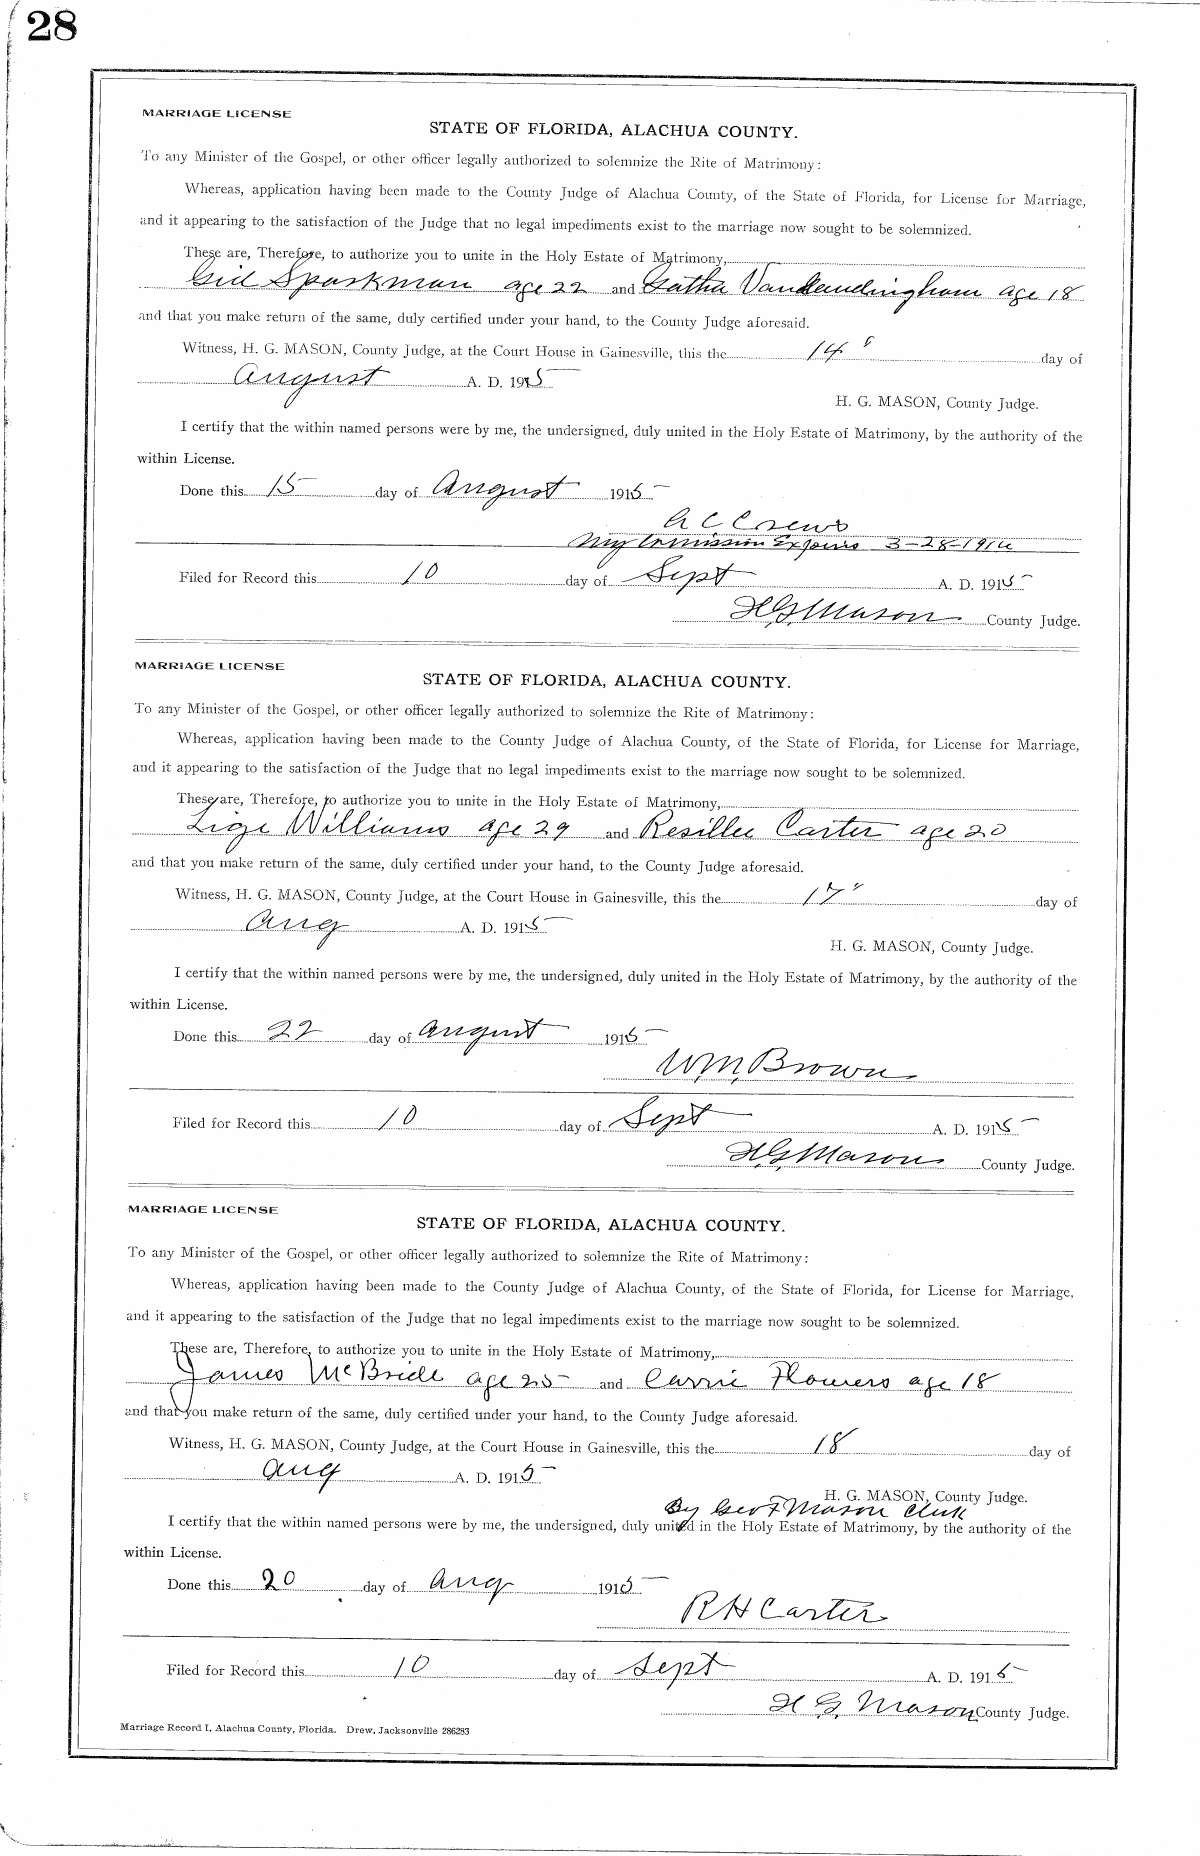 28
MARRIAGE LICENSE
STATE OF FLORIDA, ALACHUA COUNTY.
To any Minister of the Gospel, or other officer legally authorized to solemnize the Rite of Matrimony:
Whereas, application having been made to the County Judge of Alachua County, of the State of Florida, for License for Marriage,
and it appearing to the satisfaction of the Judge that no legal impediments exist to the marriage now sought to be solemnized.
These are, Therefore, to authorize you to unite in the Holy Estate of Matrimony,
Gid Sparkman age 22 and Gatha Vanlandingham age 18
and that you make return of the same, duly certified under your hand, to the County Judge aforesaid.
Witness, H. G. MASON, County Judge, at the Court House in Gainesville, this the 14" day of
August A. D. 1915
H. G. MASON, County Judge.
I certify that the within named persons were by me, the undersigned, duly united in the Holy Estate of Matrimony, by the authority of the
within License.
Done this 15 day of August 1915
A C Crews
My Comission Expires 3-28-191
Filed for Record this 10 day of Sept A. D. 1915
H.G. Mason County Judge.
MARRIAGE LICENSE
STATE OF FLORIDA, ALACHUA COUNTY.
To any Minister of the Gospel, or other officer legally authorized to solemnize the Rite of Matrimony:
Whereas, application having been made to the County Judge of Alachua County, of the State of Florida, for License for Marriage,
and it appearing to the satisfaction of the Judge that no legal impediments exist to the marriage now sought to be solemnized.
These are, Therefore, to authorize you to unite in the Holy Estate of Matrimony,
Lige Williams age 29 and Resillee Carter age 20
and that you make return of the same, duly certified under your hand, to the County Judge aforesaid.
Witness, H. G. MASON, County Judge, at the Court House in Gainesville, this the 17" day of
Aug A. D. 1915
H. G. MASON, County Judge.
I certify that the within named persons were by me, the undersigned, duly united in the Holy Estate of Matrimony, by the authority of the
within License.
Done this 22 day of August 1915
W.M. Brown
Filed for Record this 10 day of Sept A. D. 1915
H.G. Mason County Judge.
MARRIAGE LICENSE
STATE OF FLORIDA, ALACHUA COUNTY.
To any Minister of the Gospel, or other officer legally authorized to solemnize the Rite of Matrimony:
Whereas, application having been made to the County Judge of Alachua County, of the State of Florida, for License for Marriage,
and it appearing to the satisfaction of the Judge that no legal impediments exist to the marriage now sought to be solemnized.
These are, Therefore, to authorize you to unite in the Holy Estate of Matrimony,
James McBride age 25 and Carrie Flowers age 18
and that you make return of the same, duly certified under your hand, to the County Judge aforesaid.
Witness, H. G. MASON, County Judge, at the Court House in Gainesville, this the 18 day of
Aug A. D. 1915
H. G. MASON, County Judge.
By Geo F Mason Clerk
I certify that the within named persons were by me, the undersigned, duly united in the Holy Estate of Matrimony, by the authority of the
within License.
Done this 20 day of Aug 1915
R H Carter
Filed for Record this 10 day of Sept A. D. 1915
H G. Mason County Judge.
Marriage Record I, Alachua County, Florida. Drew, Jacksonville 286283